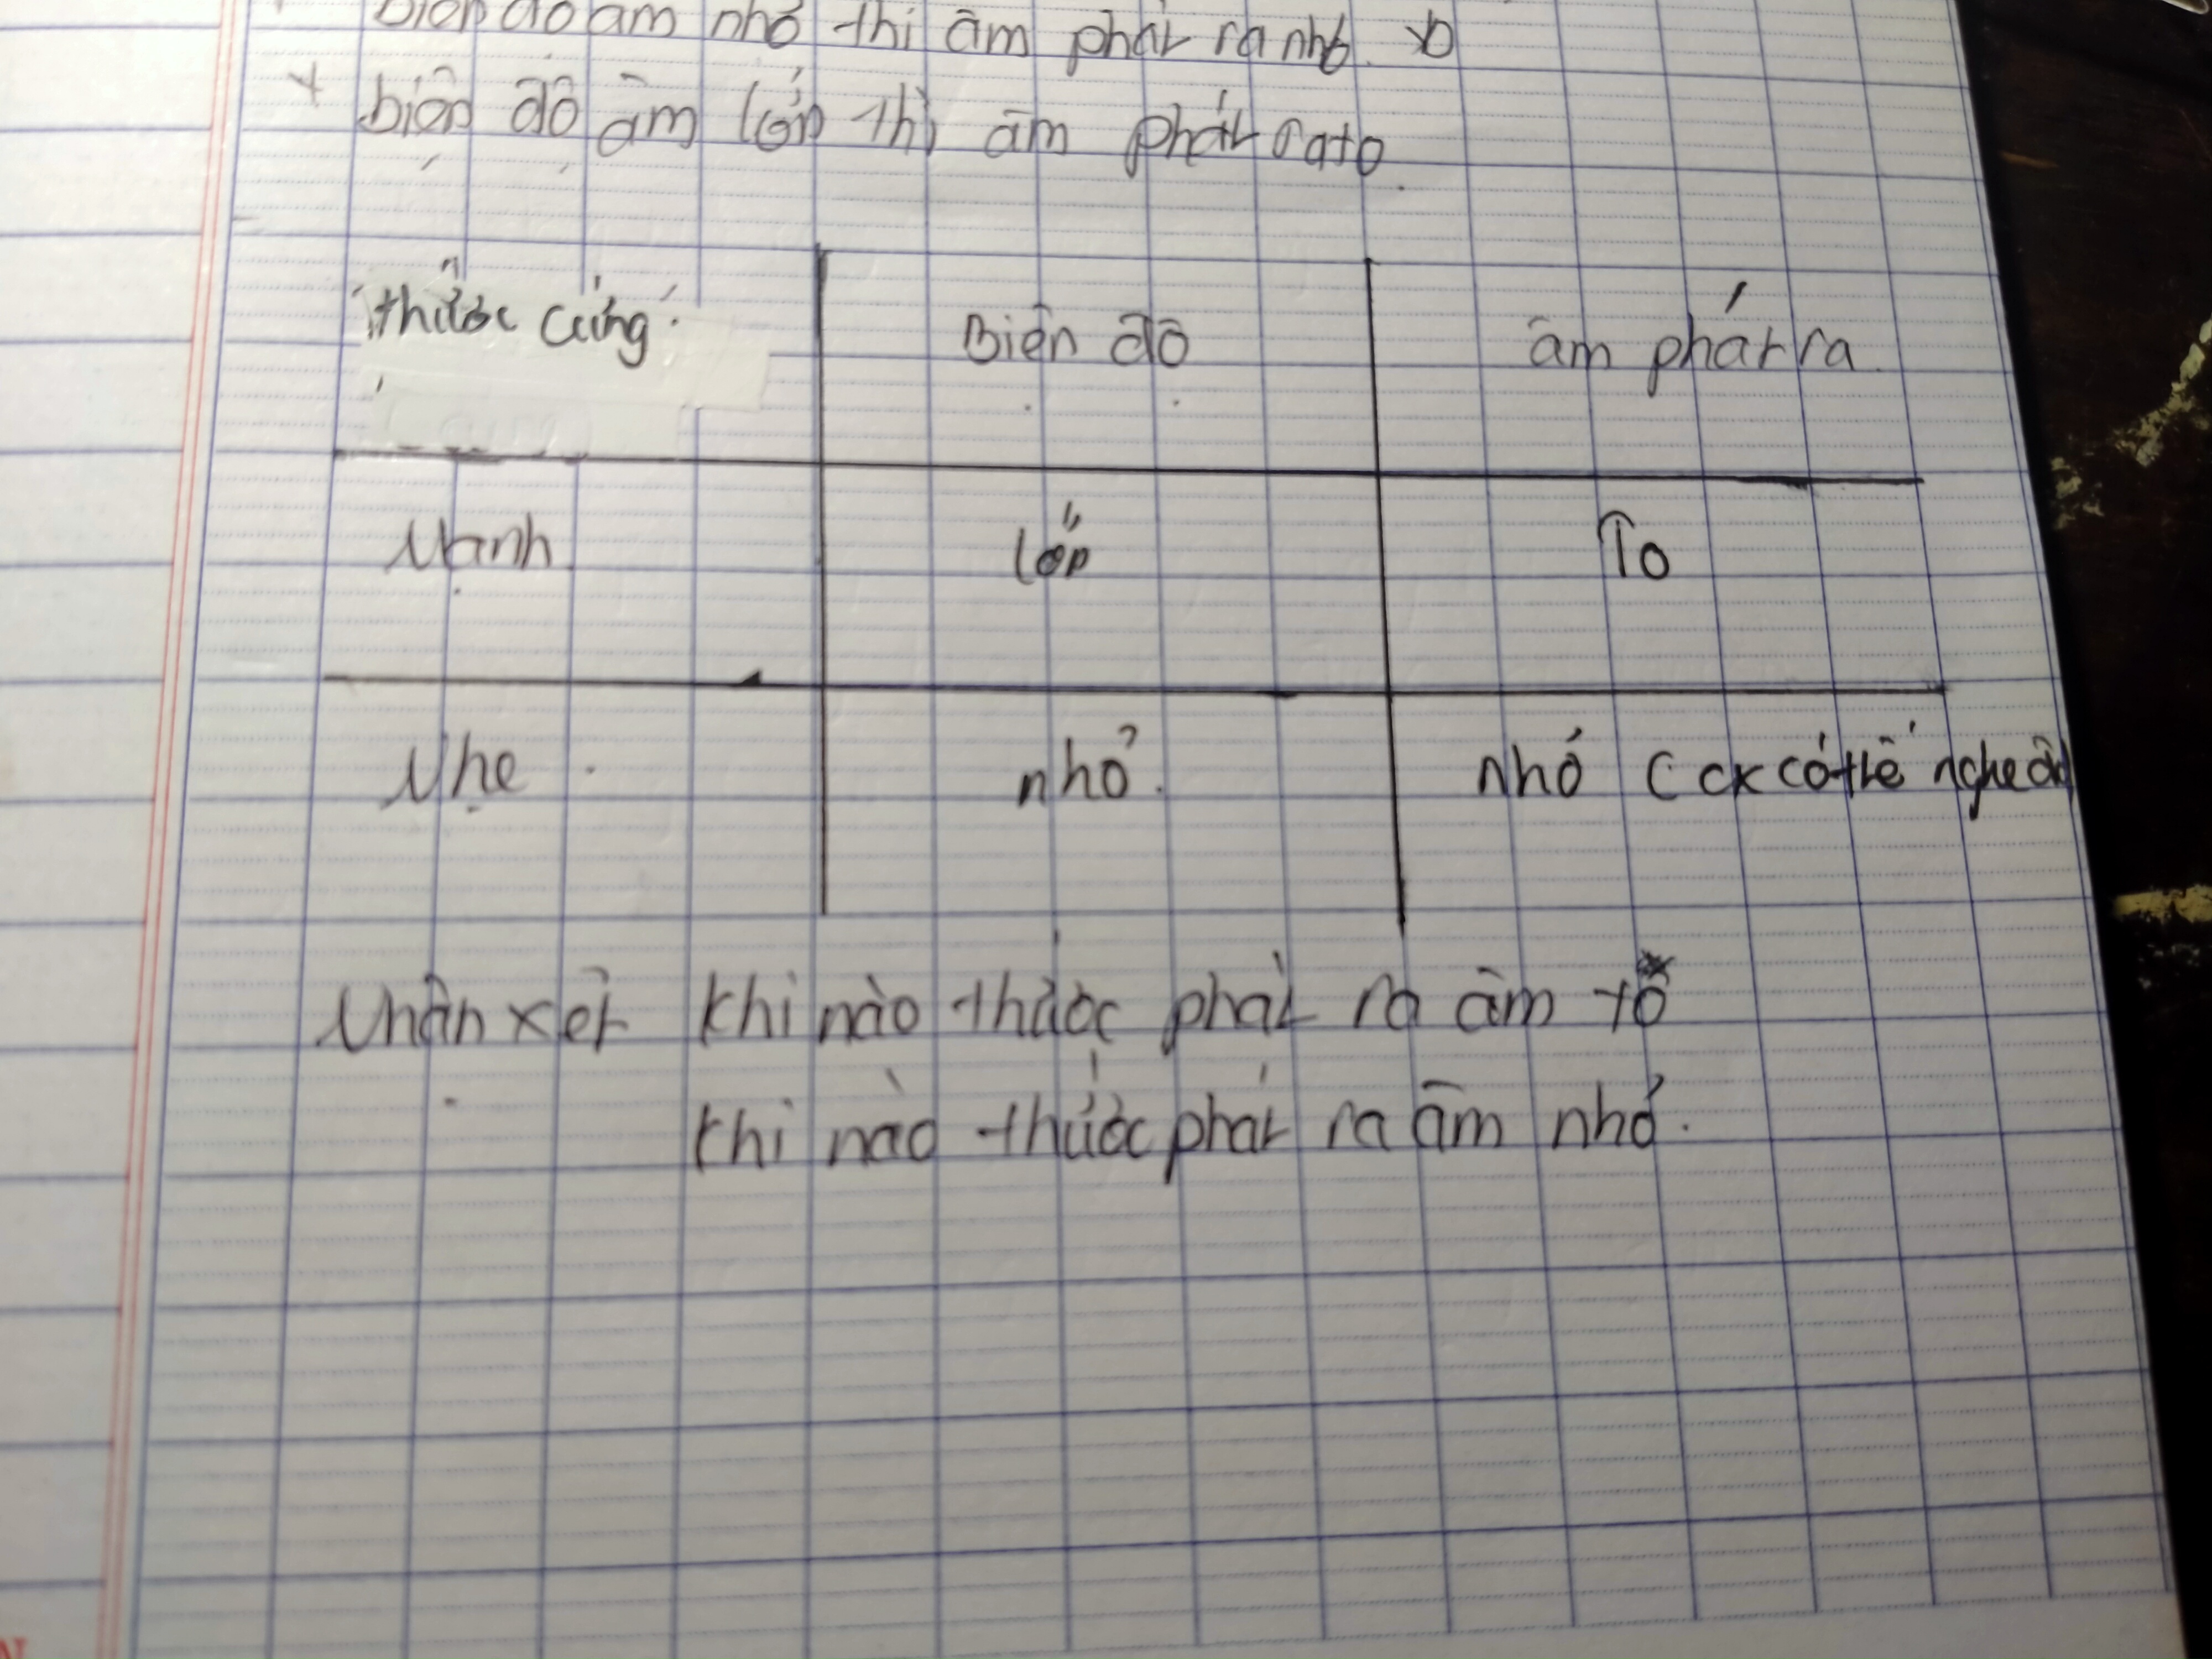 biên độ âm nhỏ thì âm phát ra nhỏ.
+ biên độ âm lớn thì âm phát ra to.
thước cứng Biên độ âm phát ra
Mạnh lớn To
Nhẹ. nhỏ. nhỏ ( ck có thể nghe
Nhận xét khi nào thước phát ra âm to
khi nào thước phát ra âm nhỏ.